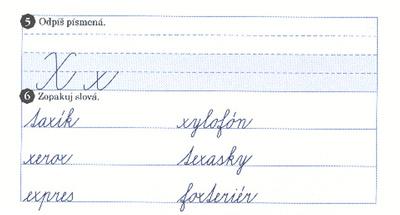 5 Odpíš písmená.
X x
6 Zopakuj slová.
taxík xylofón
xerox texasky
expres foxteriér